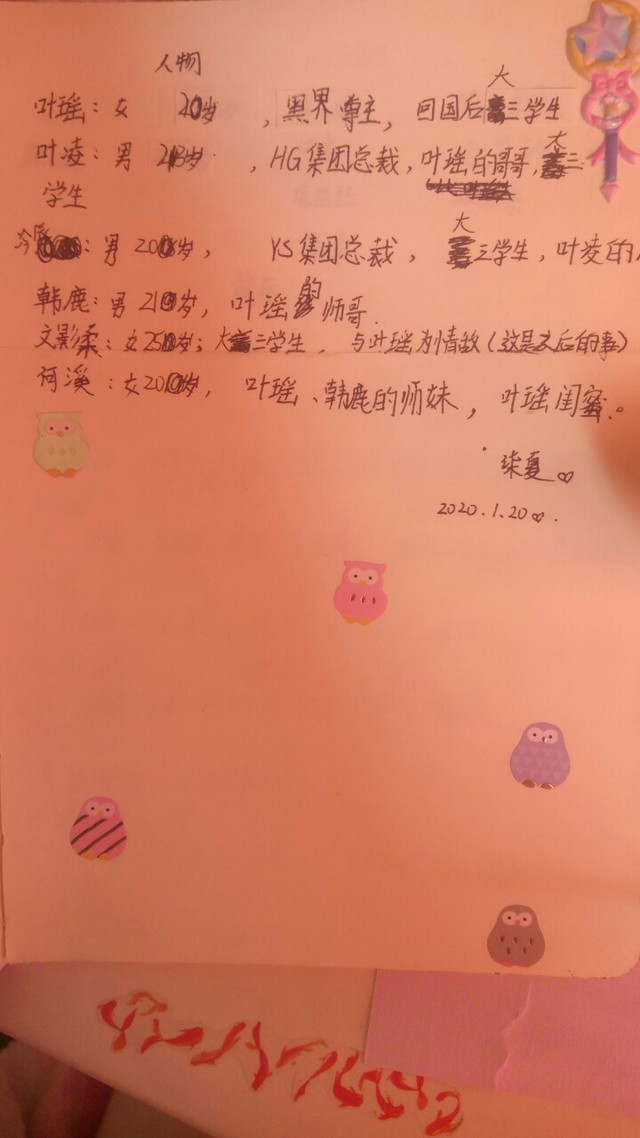 人物
叶瑶：女 20岁，黑界尊主，回国后大三学生
叶凌：男 岁，HG集团总裁，叶瑶的哥哥，大三
学生
：男 20岁，YS集团总裁，大三学生，叶凌的
韩鹿：男 21岁，叶瑶的师哥.
文影柔：女 岁；大三学生，与叶瑶为情敌（这是之后的事）
何溪：女20岁，叶瑶、韩鹿的师妹，叶瑶闺蜜。
柒夏♡
2020.1.20♡.